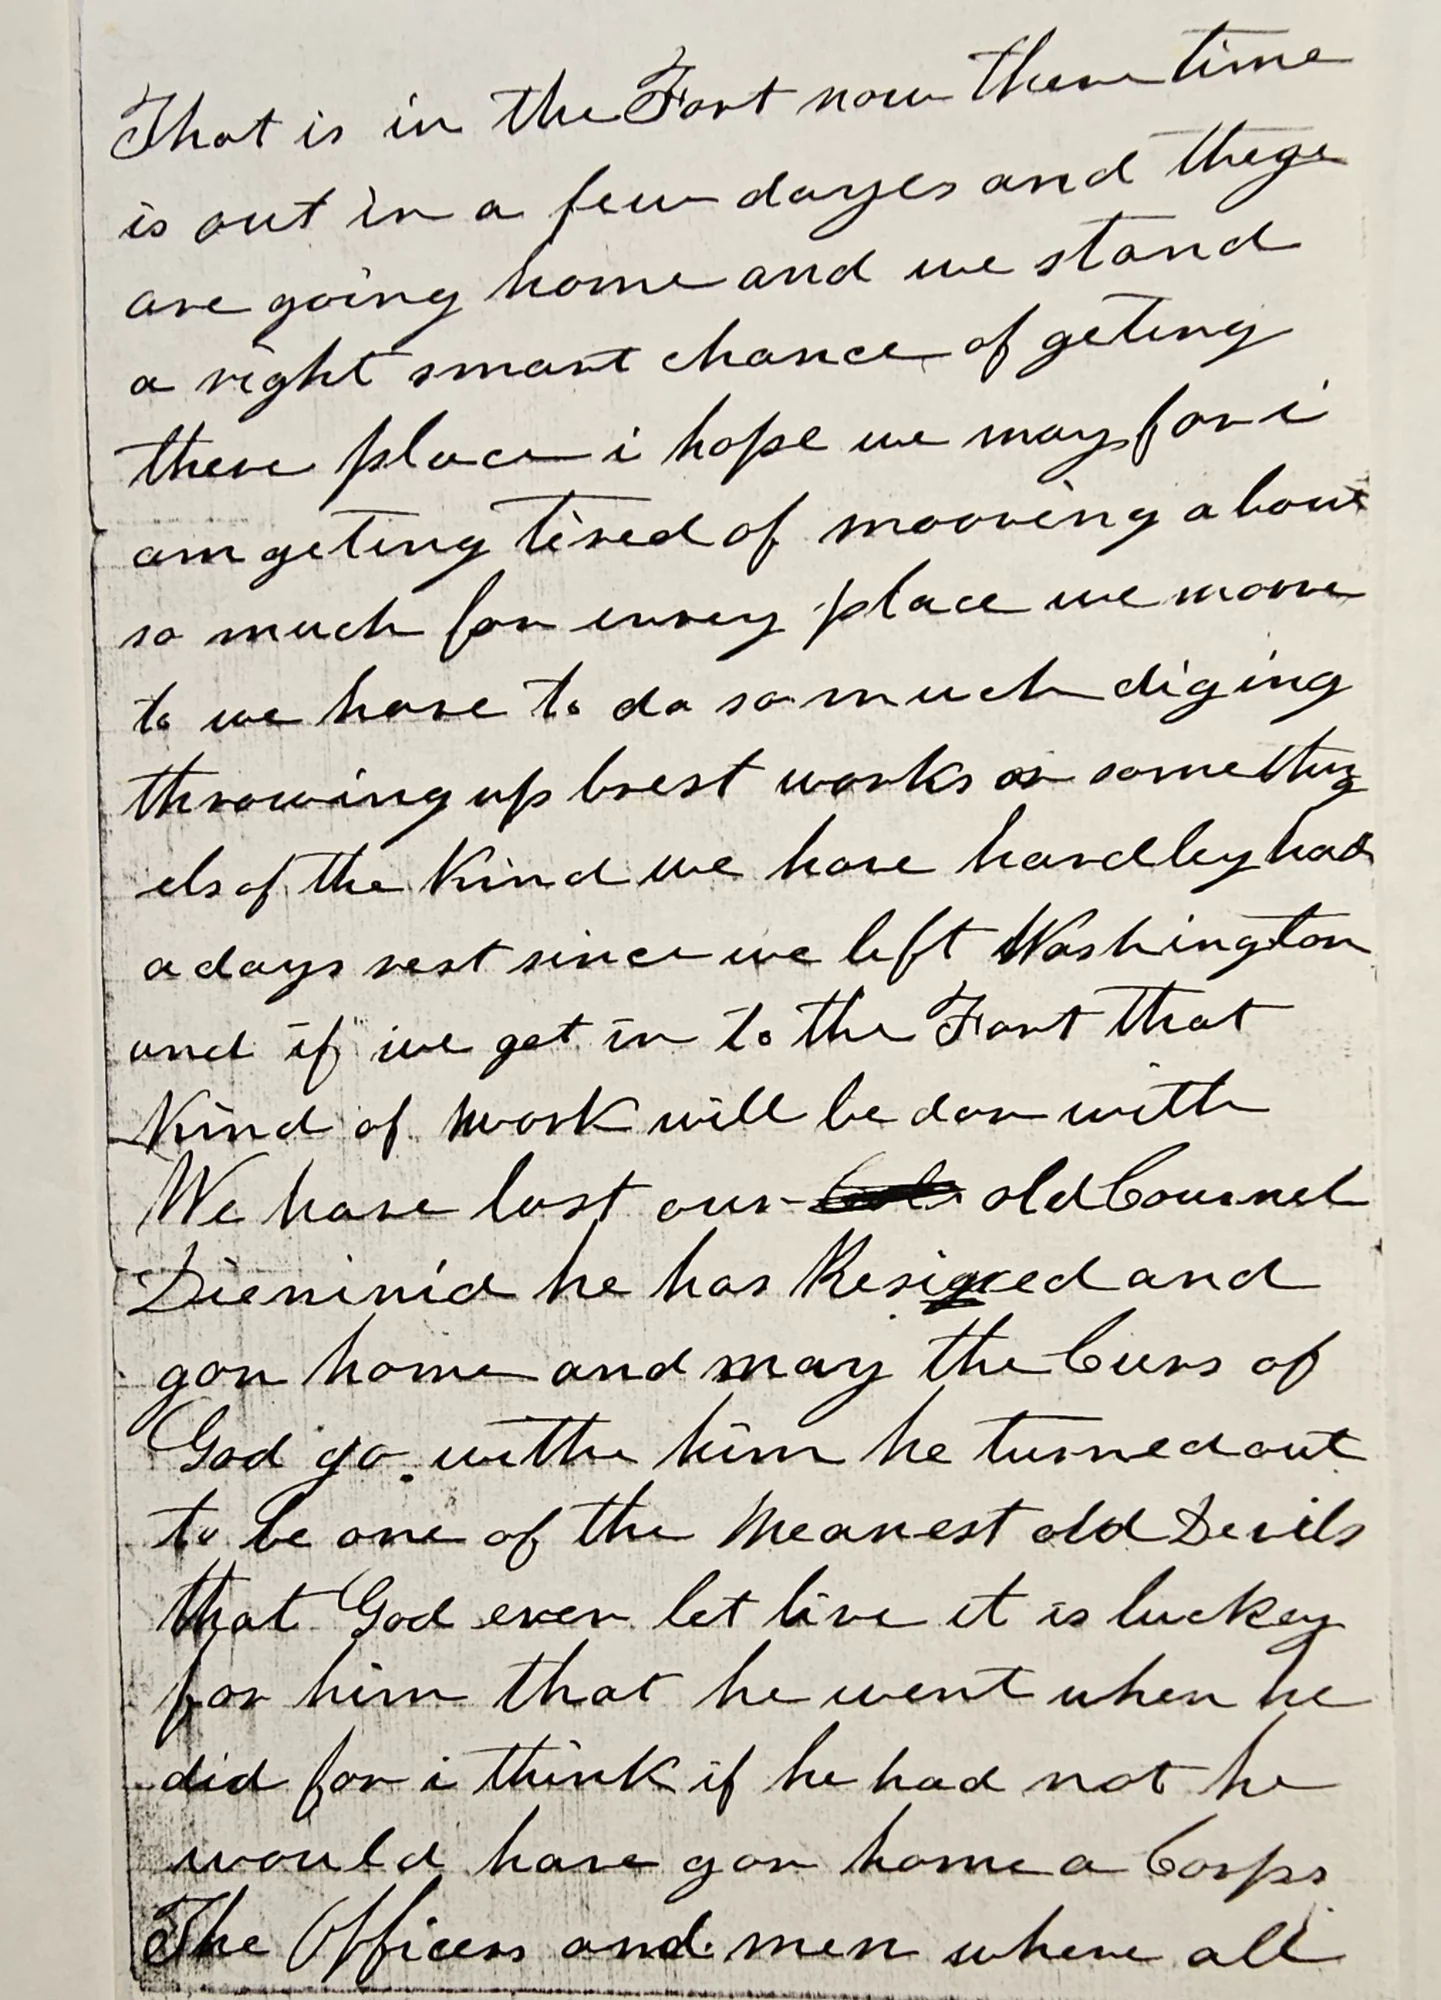 That is in the Fort now there time
is out in a few dayes and thege
are going home and we stand
a right smart chance of geting
there place i hope we may for i
am geting tired of mooving about
so much for evrey place we moove
to we have to do so much diging
throwing up brest works or something
els of the Kind we have hardley had
a days rest since we left Washington
and if we get in to the Fort that
Kind of work will be don with
We have lost our old Cournel
Dieninid he has Resigned and
gon home and may the Curs of
God go withe him he turned out
to be one of the Meanest old Devils
that God ever let live it is luckey
for him that he went when he
did for i think if he had not he
would have gon home a Corps
The Officers and men where all